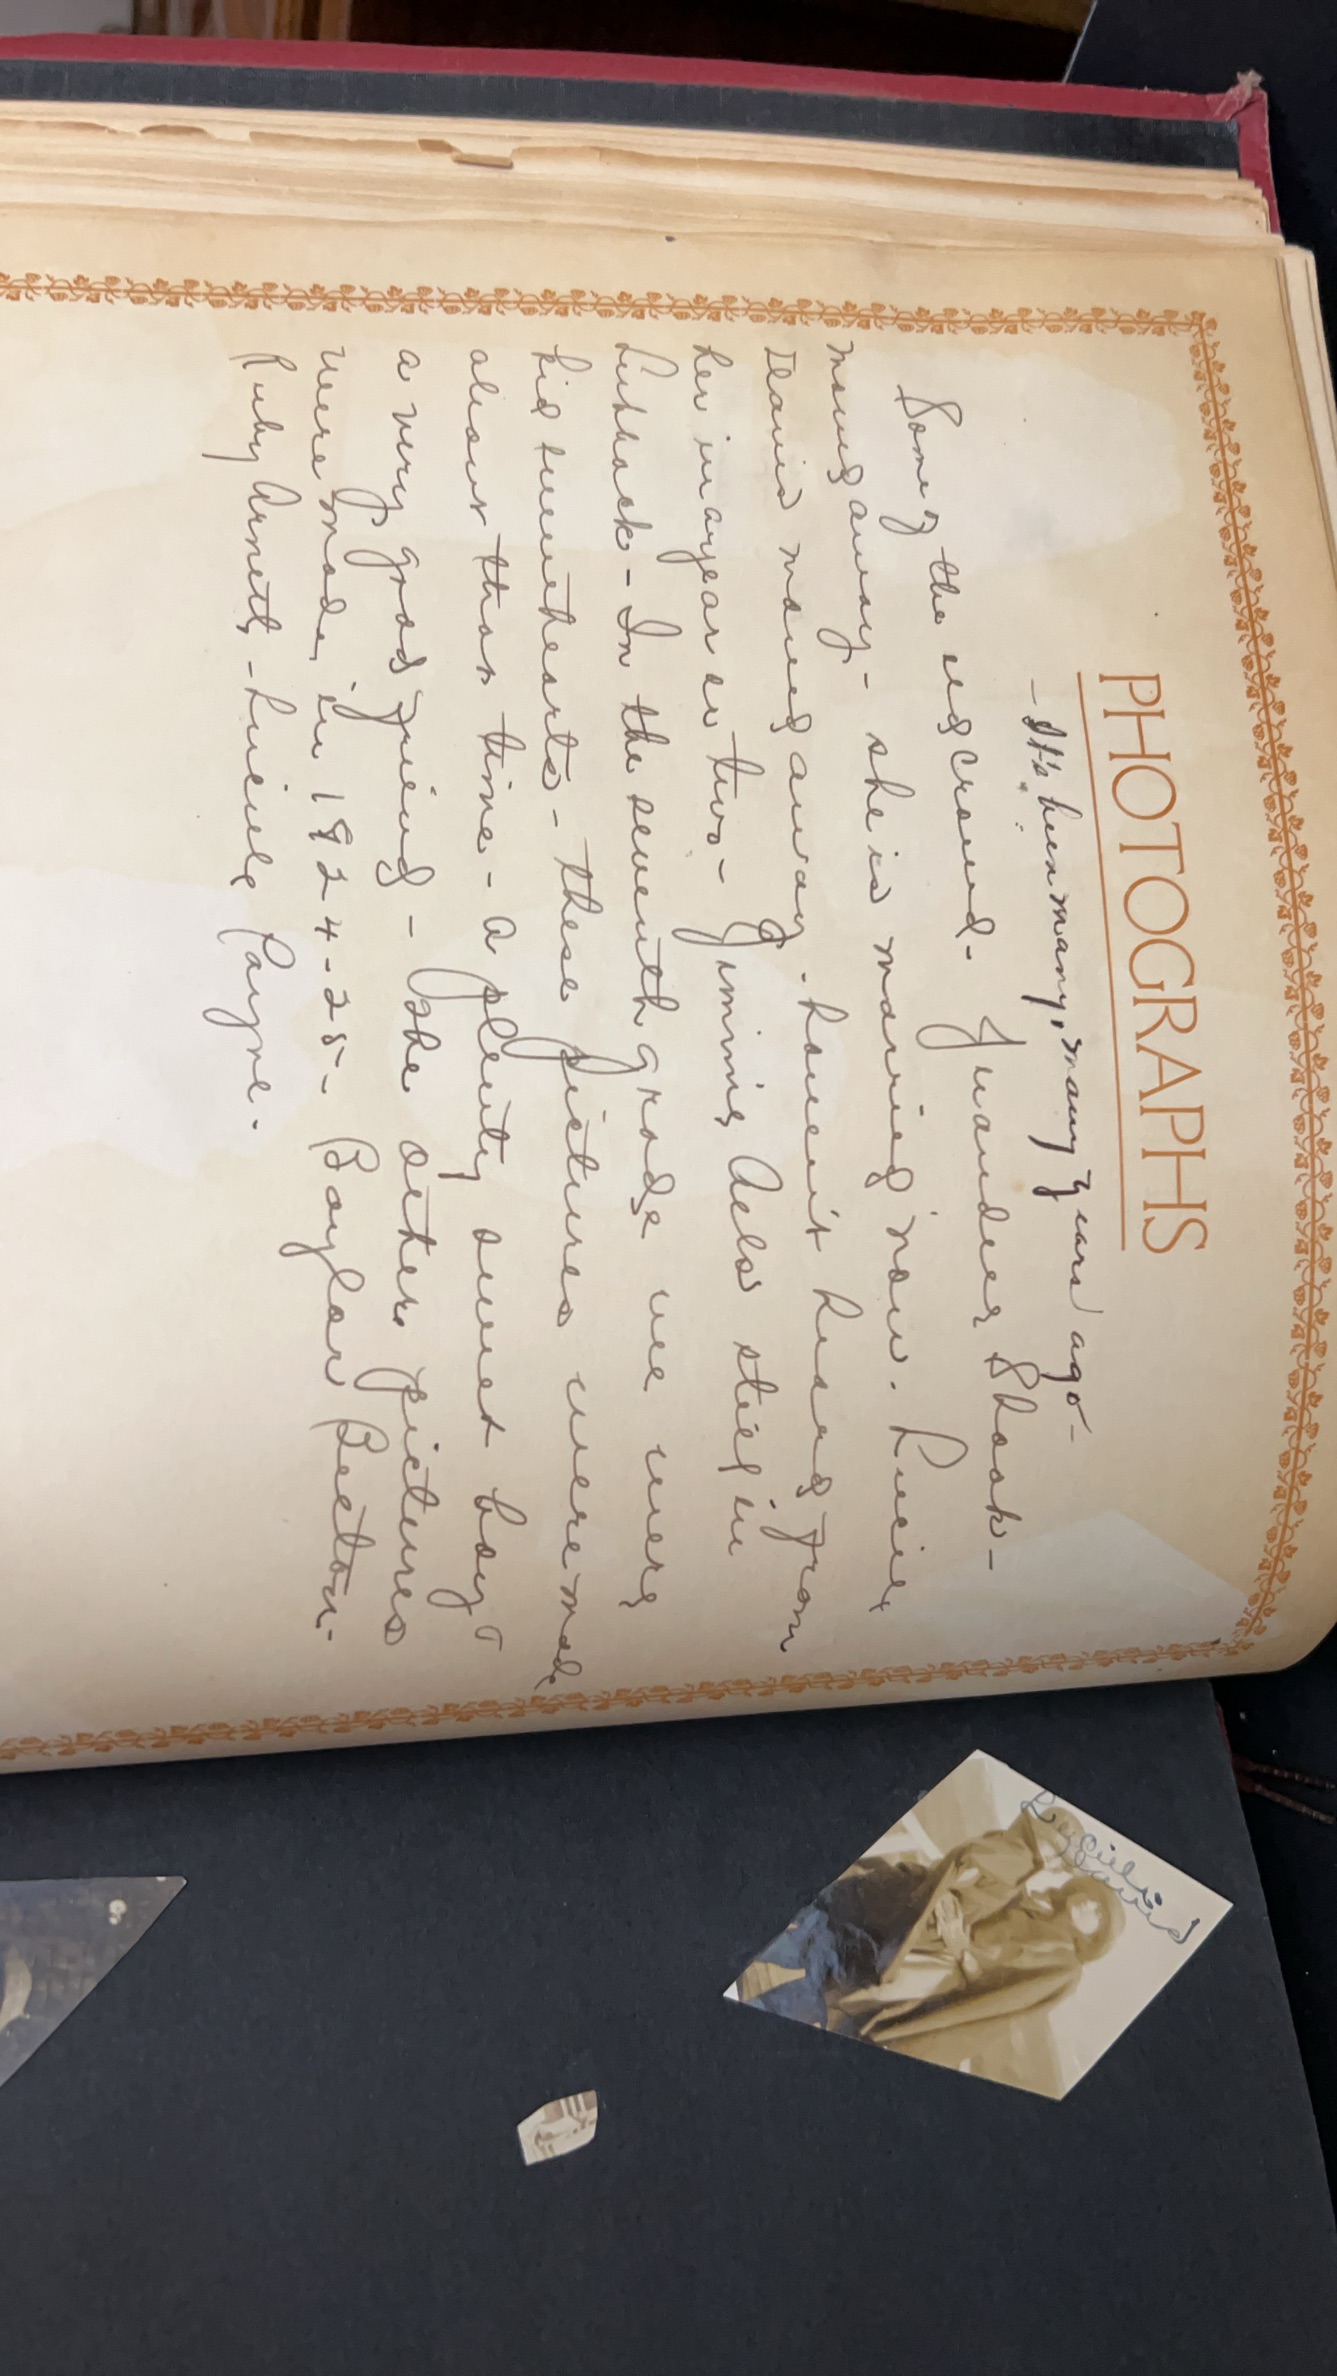 PHOTOGRAPHS
- It's been many, many years ago -
Some of the old crowd - Juandee Shook -
moved away - she is married now. Lucile
Davis moved away. haven't heard from
her in a year or two - Jimmie still in
Lubbock - In the seventh grade we were
kid sweethearts - these pictures were made
about that time - a plenty sweet boy &
a very good friend - The others pictures
were made in 1924-25 - Baylor Becton -
Ruby Arnett - Lucile Payne.
Lucile Davis